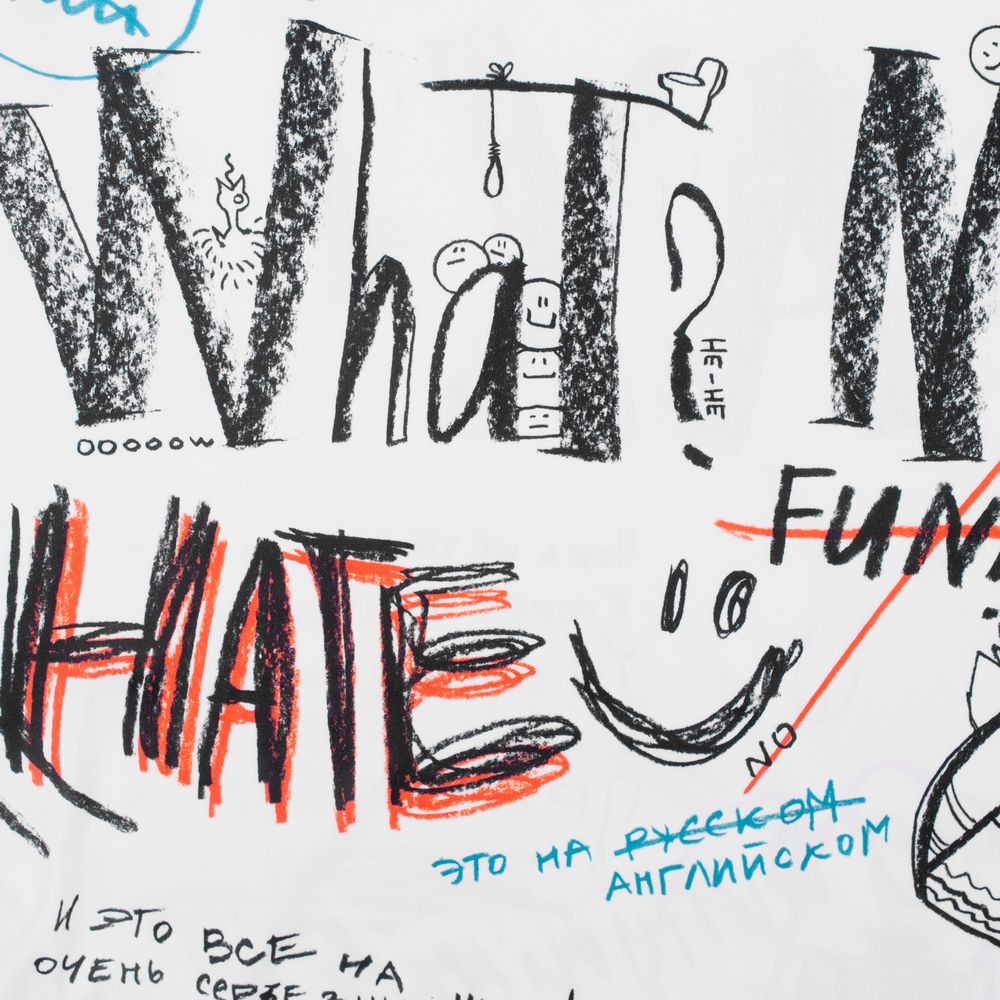 What?
HE-HE
OOOOOW
FUN
HATE
NO
ЭТО НА РУССКОМ
АНГЛИЙСКОМ
И ЭТО ВСЕ НА
ОЧЕНЬ